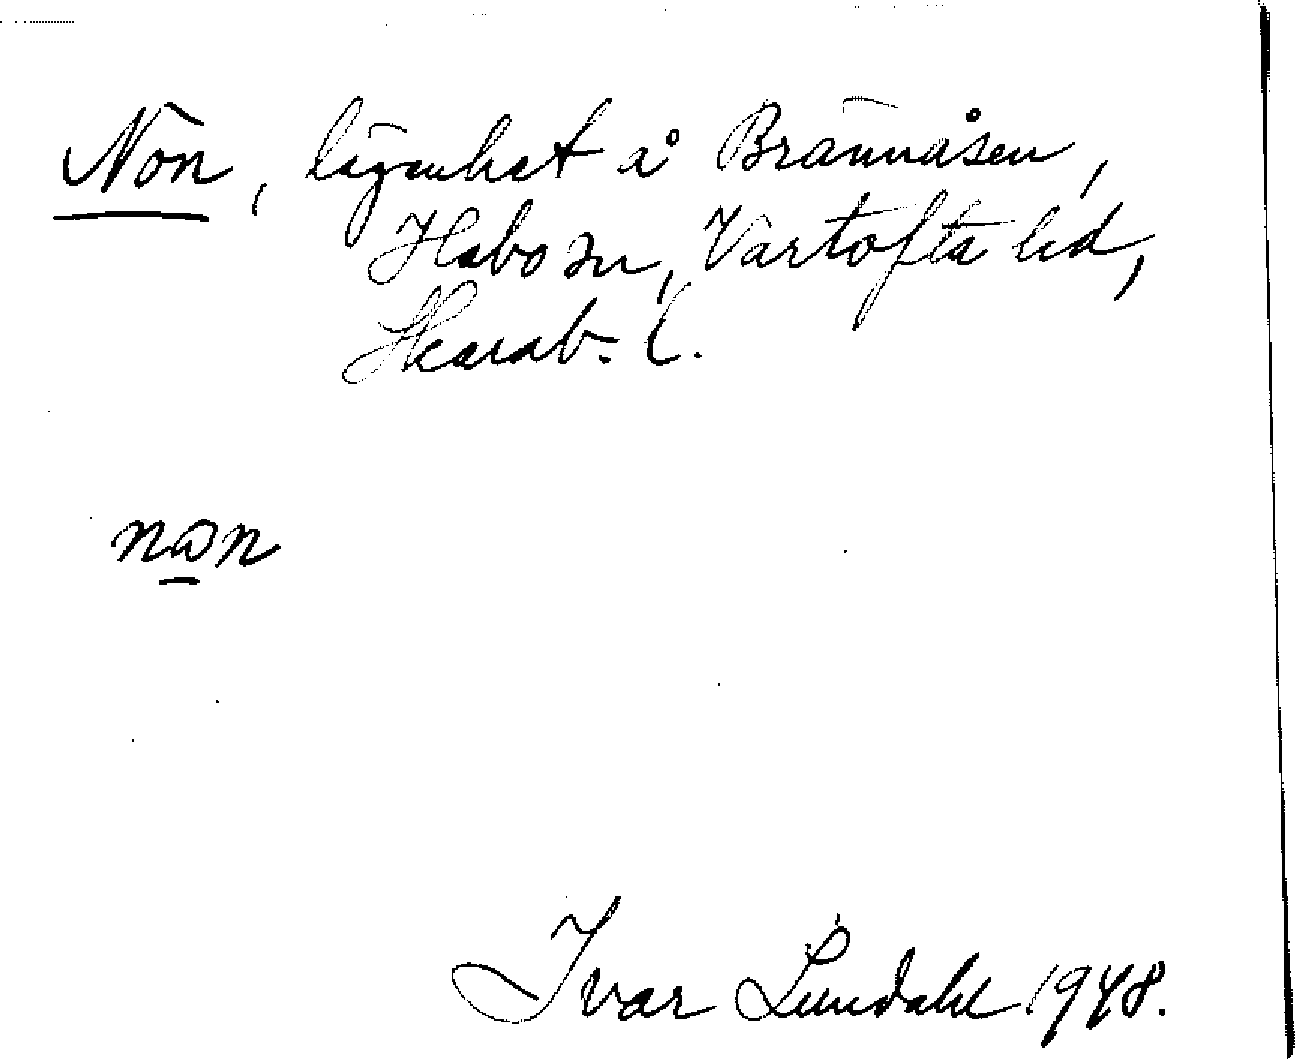 Nön, lägenhet å Brännåsen,
Habo sn, Vartofta hd,
Skarab. l.
nωn
Ivar Lundahl 1948.